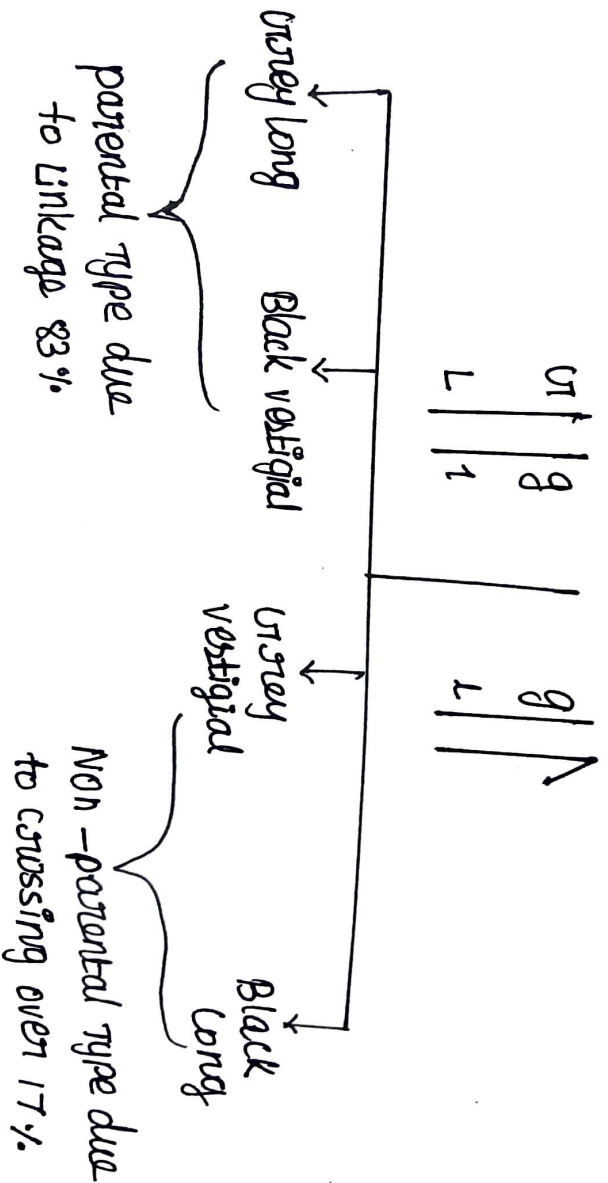 G g g
L l l
Grey long Black vestigial Grey vestigial Black long
parental Type due to Linkage 83%
Non-parental Type due to crossing over 17%